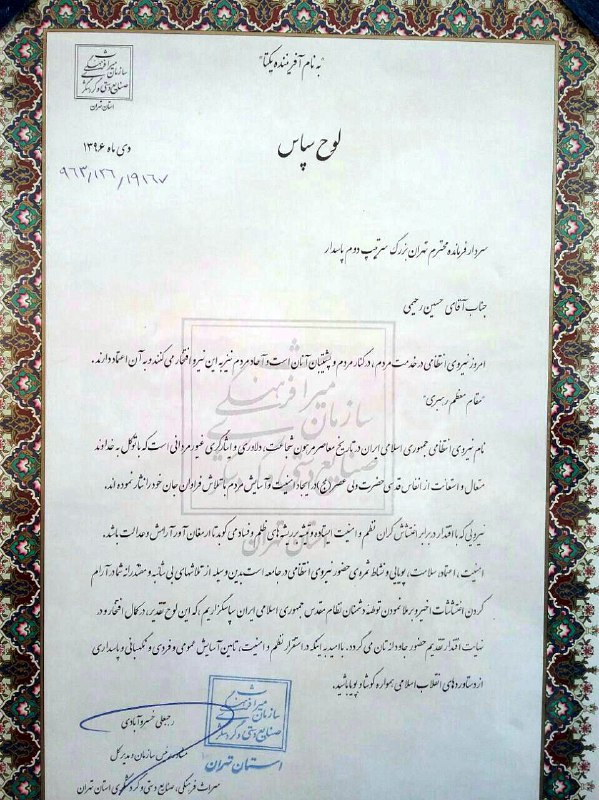 "به نام آفریننده یکتا"
سازمان میراث فرهنگی
صنایع دستی و گردشگری
استان تهران
لوح سپاس
دی ماه ۱۳۹۶
۹۶۳/۱۲۶/۱۹۱۶۷
سردار فرمانده محترم تهران بزرگ سرتیپ دوم پاسدار
جناب آقای حسین رحیمی
امروز نیروی انتظامی در خدمت مردم، در کنار مردم و پشتیبان آنان است و آحاد مردم نیز به این نیرو افتخار می کنند و به آن اعتماد دارند.
"مقام معظم رهبری"
نام نیروی انتظامی جمهوری اسلامی ایران در تاریخ معاصر مرهون شجاعت، دلاوری و ایثارگری غیور مردانی است که با توکل به خداوند
متعال و استعانت از انفاس قدسی حضرت ولی عصر (عج) در ایجاد امنیت و آسایش مردم با تلاش فراوان جان خود را نثار نموده اند.
نیرویی که با اقتدار در برابر اغتشاش گران نظم و امنیت ایستاده و تیشه بر ریشه های ظلم و فساد می کوبد تا ارمغان آور آرامش و عدالت باشد.
امنیت، اعتماد، سلامت، پویایی و نشاط ثمره ی حضور نیروی انتظامی در جامعه است بدین وسیله از تلاشهای بی شائبه و مقتدرانه شما در آرام
کردن اغتشاشات اخیر و برملا نمودن توطئه دشمنان نظام مقدس جمهوری اسلامی ایران سپاسگزاریم، که این لوح تقدیر، در کمال افتخار و در
نهایت اقتدار تقدیم حضور جاودانه تان می گردد. با امید به اینکه در استقرار نظم و امنیت، تامین آسایش عمومی و فردی و نگهبانی و پاسداری
از دستاوردهای انقلاب اسلامی همواره کوشا و پویا باشید.
سازمان میراث فرهنگی
صنایع دستی و گردشگری
استان تهران
رجبعلی خسروآبادی
رئیس سازمان و مدیر کل
میراث فرهنگی، صنایع دستی و گردشگری استان تهران